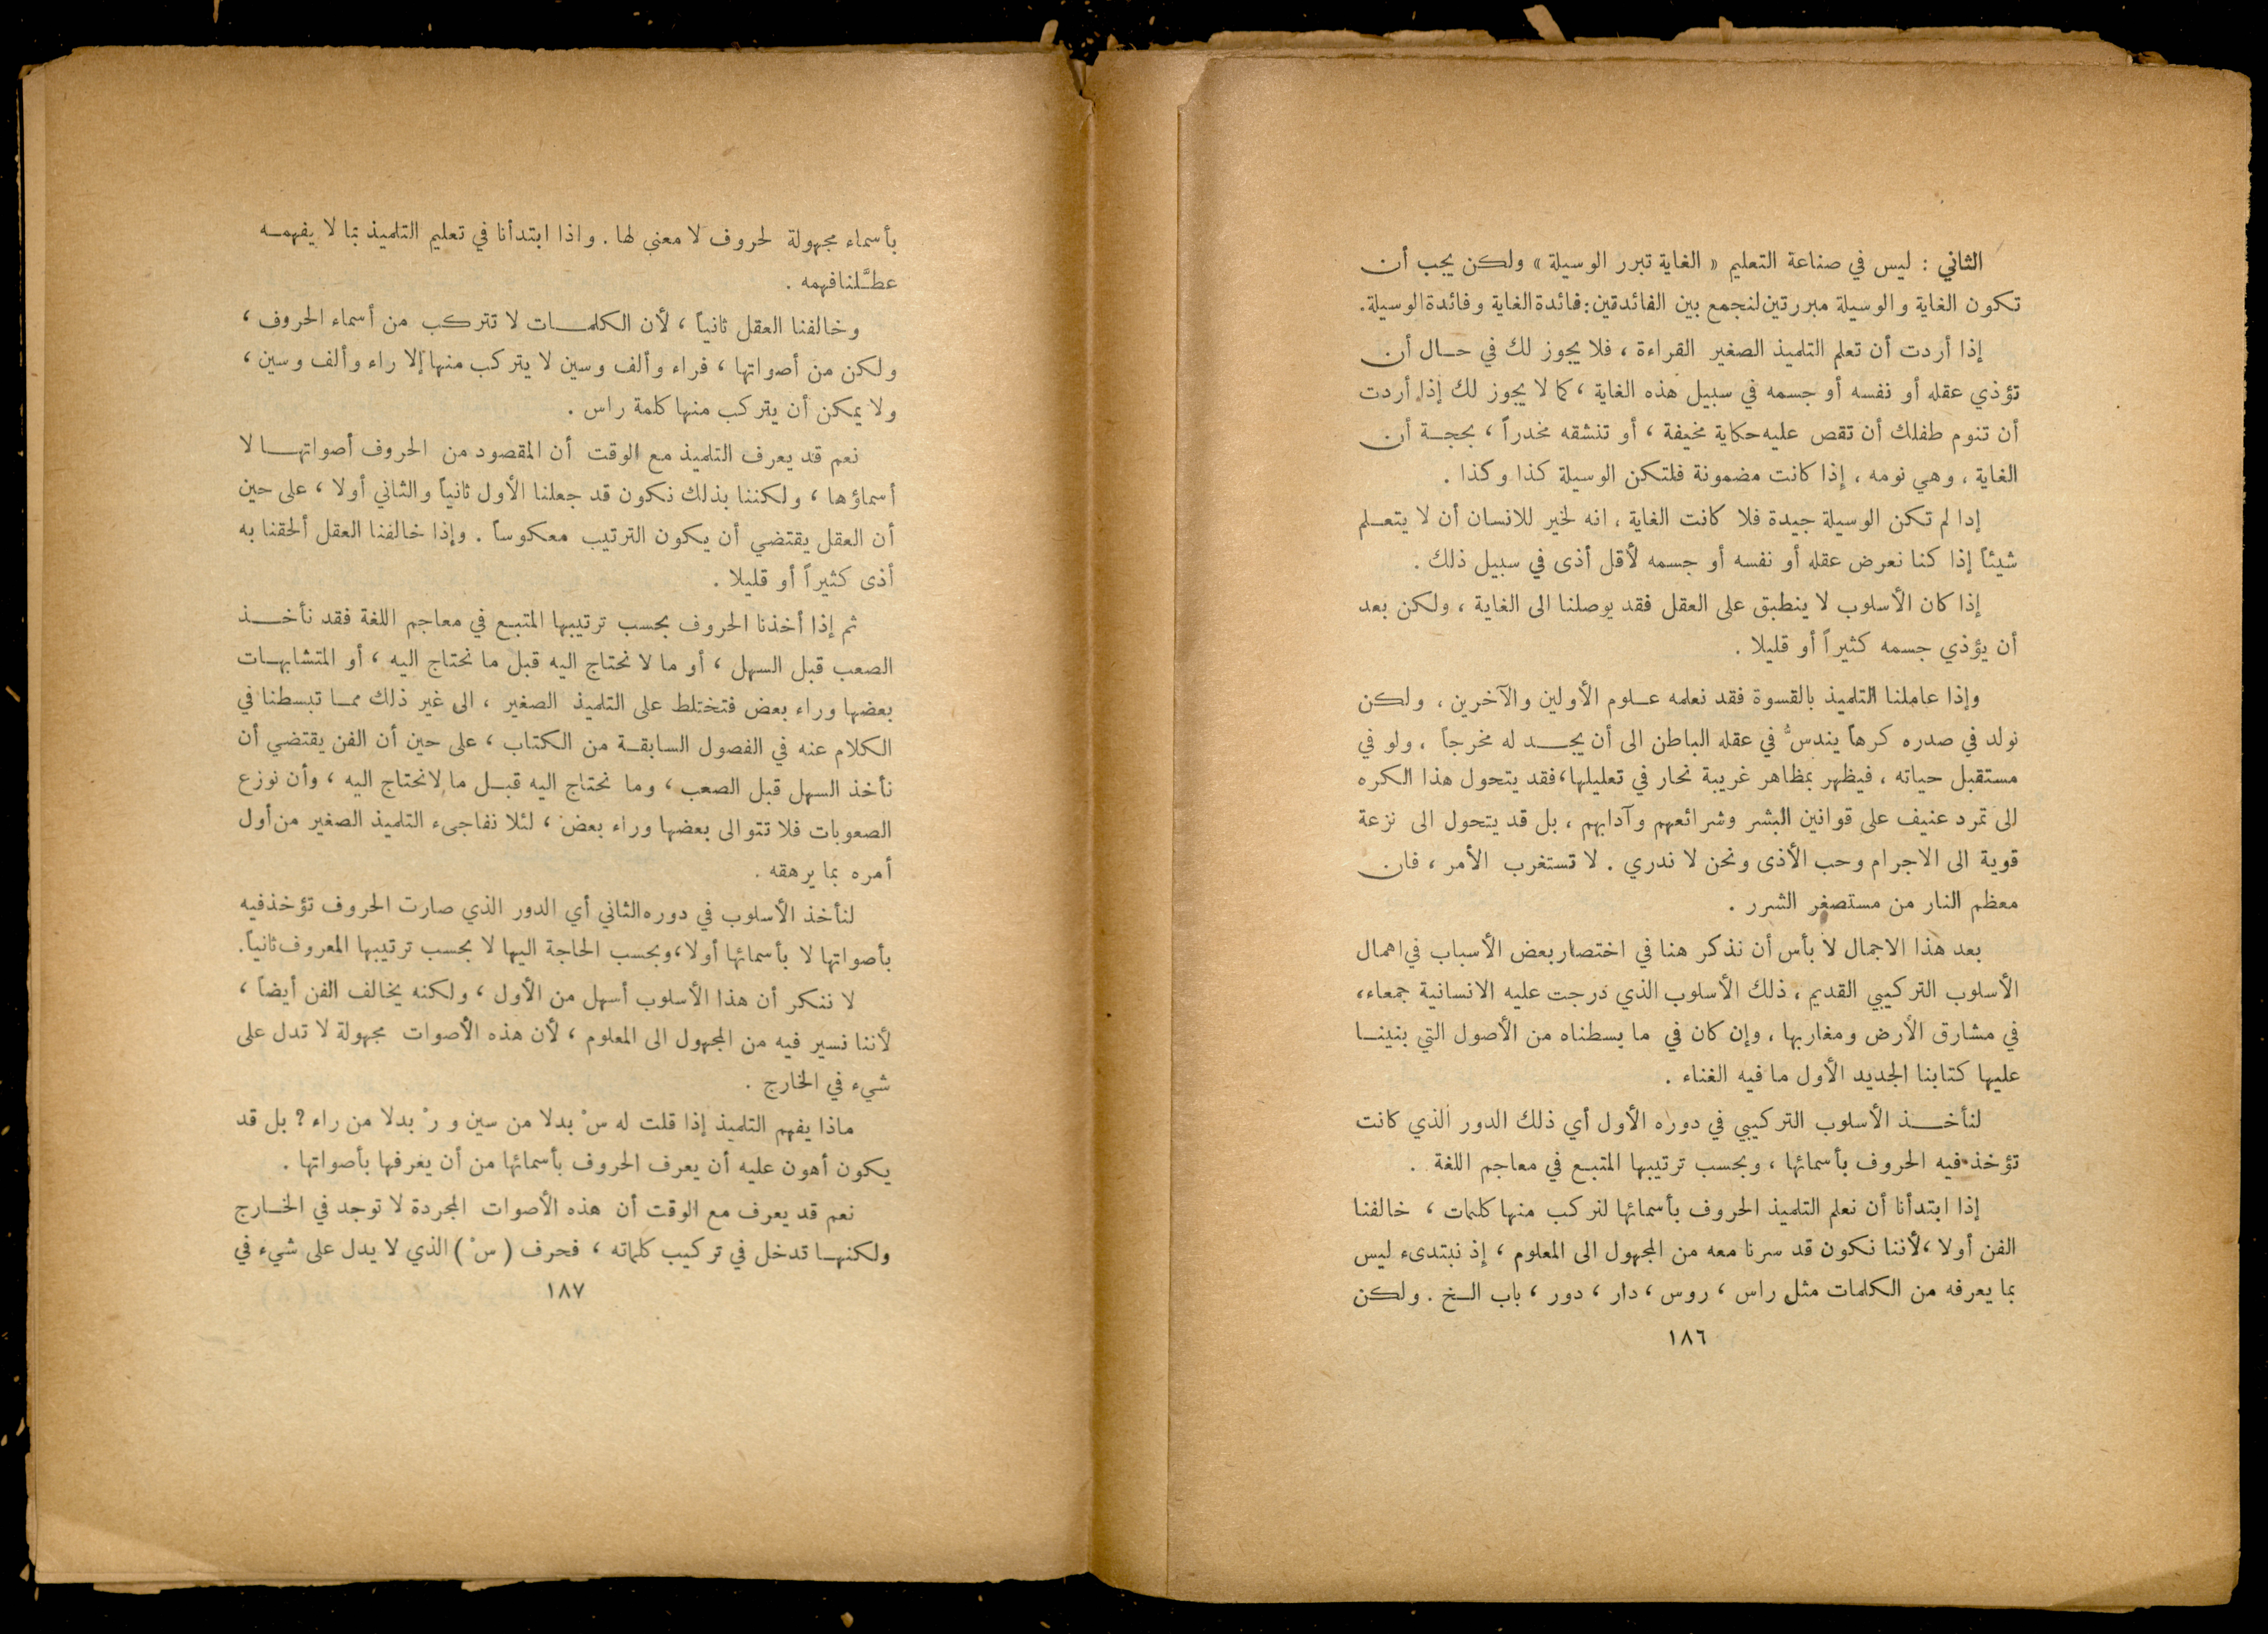 الثاني : ليس في صناعة التعليم « الغاية تبرر الوسيلة » ولكن يجب أن
تكون الغاية والوسيلة مبررتين لنجمع بين الفائدتين : فائدة الغاية وفائدة الوسيلة.
إذا أردت أن تعلم التلميذ الصغير القراءة ، فلا يجوز لك في حال أن
تؤذي عقله أو نفسه أو جسمه في سبيل هذه الغاية ، كما لا يجوز لك إذا أردت
أن تنوم طفلك أن تقص عليه حكاية مخيفة ، أو تنشقه مخدراً ، بحجة أن
الغاية ، وهي نومه ، إذا كانت مضمونة فلتكن الوسيلة كذا وكذا .
إدا لم تكن الوسيلة جيدة فلا كانت الغاية ، انه لخير للانسان أن لا يتعلم
شيئاً إذا كنا نعرض عقله أو نفسه أو جسمه لأقل أذى في سبيل ذلك .
إذا كان الأسلوب لا ينطبق على العقل فقد يوصلنا الى الغاية ، ولكن بعد
أن يؤذي جسمه كثيراً أو قليلا .
وإذا عاملنا التلميذ بالقسوة فقد نعلمه علوم الأولين والآخرين ، ولكن
نولد في صدره كرهاً يندسُّ في عقله الباطن الى أن يجد له مخرجاً ، ولو في
مستقبل حياته ، فيظهر بمظاهر غريبة نحار في تعليلها ، فقد يتحول هذا الكره
الى تمرد عنيف على قوانين البشر وشرائعهم وآدابهم ، بل قد يتحول الى نزعة
قوية الى الاجرام وحب الأذى ونحن لا ندري . لا تستغرب الأمر ، فان
معظم النار من مستصغر الشرر .
بعد هذا الاجمال لا بأس أن نذكر هنا في اختصار بعض الأسباب في اهمال
الأسلوب التركيبي القديم ، ذلك الأسلوب الذي درجت عليه الانسانية جمعاء ،
في مشارق الأرض ومغاربها ، وإن كان في ما بسطناه من الأصول التي بنينا
عليها كتابنا الجديد الأول ما فيه الغناء .
لنأخذ الأسلوب التركيبي في دوره الأول أي ذلك الدور الذي كانت
تؤخذ فيه الحروف بأسمائها ، وبحسب ترتيبها المتبع في معاجم اللغة .
إذا ابتدأنا أن نعلم التلميذ الحروف بأسمائها لنركب منها كلمات ، خالفنا
الفن أولا ، لأننا نكون قد سرنا معه من المجهول الى المعلوم ، إذ نبتدىء ليس
بما يعرفه من الكلمات مثل راس ، روس ، دار ، دور ، باب الخ . ولكن
١٨٦
بأسماء مجهولة لحروف لا معنى لها . واذا ابتدأنا في تعليم التلميذ بما لا يفهمه
عطَّلنا فهمه .
وخالفنا العقل ثانياً ، لأن الكلمات لا تتركب من أسماء الحروف ،
ولكن من أصواتها ، فراء وألف وسين لا يتركب منها إلا راء وألف وسين ،
ولا يمكن أن يتركب منها كلمة راس .
نعم قد يعرف التلميذ مع الوقت أن المقصود من الحروف أصواتها لا
أسماؤها ، ولكننا بذلك نكون قد جعلنا الأول ثانياً والثاني أولا ، على حين
أن العقل يقتضي أن يكون الترتيب معكوساً . وإذا خالفنا العقل ألحقنا به
أذى كثيراً أو قليلا .
ثم إذا أخذنا الحروف بحسب ترتيبها المتبع في معاجم اللغة فقد نأخذ
الصعب قبل السهل ، أو ما لا نحتاج اليه قبل ما نحتاج اليه ، أو المتشابهات
بعضها وراء بعض فتختلط على التلميذ الصغير ، الى غير ذلك مما تبسطنا في
الكلام عنه في الفصول السابقة من الكتاب ، على حين أن الفن يقتضي أن
نأخذ السهل قبل الصعب ، وما نحتاج اليه قبل ما لا نحتاج اليه ، وأن نوزع
الصعوبات فلا تتوالى بعضها وراء بعض ، لئلا نفاجىء التلميذ الصغير من أول
أمره بما يرهقه .
لنأخذ الأسلوب في دوره الثاني أي الدور الذي صارت الحروف تؤخذ فيه
بأصواتها لا بأسمائها أولا ، وبحسب الحاجة اليها لا بحسب ترتيبها المعروف ثانياً .
لا ننكر أن هذا الأسلوب أسهل من الأول ، ولكنه يخالف الفن أيضاً ،
لأننا نسير فيه من المجهول الى المعلوم ، لأن هذه الأصوات مجهولة لا تدل على
شيء في الخارج .
ماذا يفهم التلميذ إذا قلت له سْ بدلا من سين و رْ بدلا من راء ? بل قد
يكون أهون عليه أن يعرف الحروف بأسمائها من أن يعرفها بأصواتها .
نعم قد يعرف مع الوقت أن هذه الأصوات المجردة لا توجد في الخارج
ولكنها تدخل في تركيب كلماته ، فحرف ( سْ ) الذي لا يدل على شيء في
١٨٧